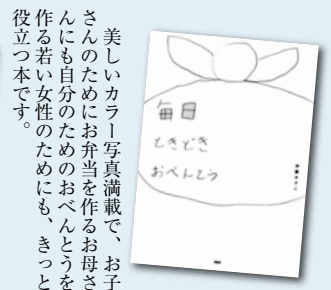 美しいカラー写真満載で、お子
さんのためにお弁当を作るお母さ
んにも自分のためのおべんとうを
作る若い女性のためにも、きっと
役立つ本です。
毎日
ときどき
おべんとう